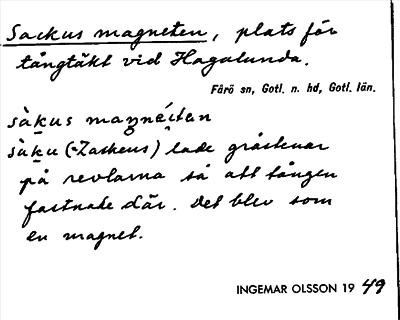 Sackus magneten, plats för
tångtäkt vid Hagalunda.
Fårö sn, Gotl. n. hd, Gotl. län.
sàkus maŋnéitan
sàku (=Zackeus) lade gråstenar
på revlarna så att tången
fastnade där. Det blev som
en magnet.
INGEMAR OLSSON 19 49